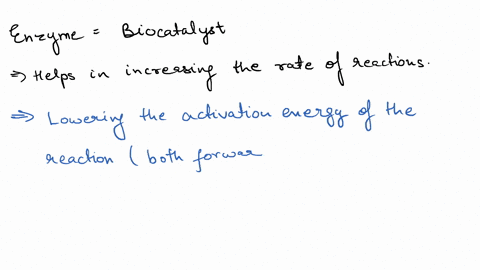 Enzyme = Biocatalyst
⇒ Helps in increasing the rate of reactions.
⇒ Lowering the activation energy of the
reaction ( both forwar